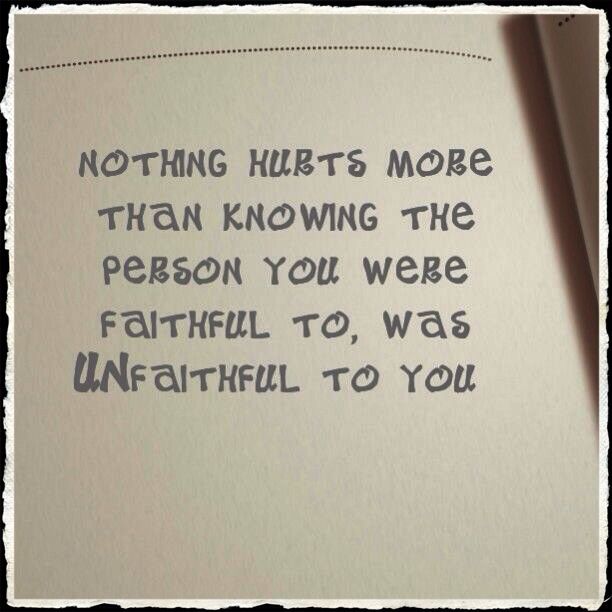 NOTHING HURTS MORE
THaN KNOWING THE
PeRSON YOU WeRe
FaITHFUL TO, WaS
UNFaITHFUL TO YOU